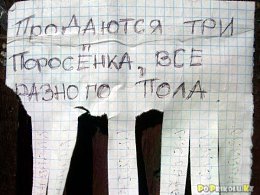 ПРОДАЮТСЯ ТРИ
ПОРОСЁНКА, ВСЕ
РАЗНОГО ПОЛА.
PoPrikolu.Ky